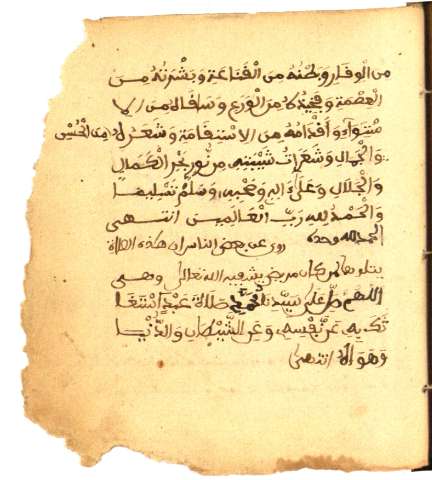 من الوفار وبطنه من الفناعة وبشرته من
العصمة وفخذاه من الورع وسافاه من الا
ستواء وأفدامه من الاستفامة وشعر له من الحسن
والجمال وشعرات شيبته من نور بحر الكمال
والجلال وعلى ءاله وصحبه وسلم تسليما
والحمد لله رب العالمين انتهى
الحمد لله وحده روي عن بعض الناس ان هذه الصلاة
يتلوها من كان مريض يشفيه الله تعالى وهي
اللهم صل على سيدنا محمد صلاة عبد
به عن نفسه وعن الشيطان والدنيا
وهواه انتهى